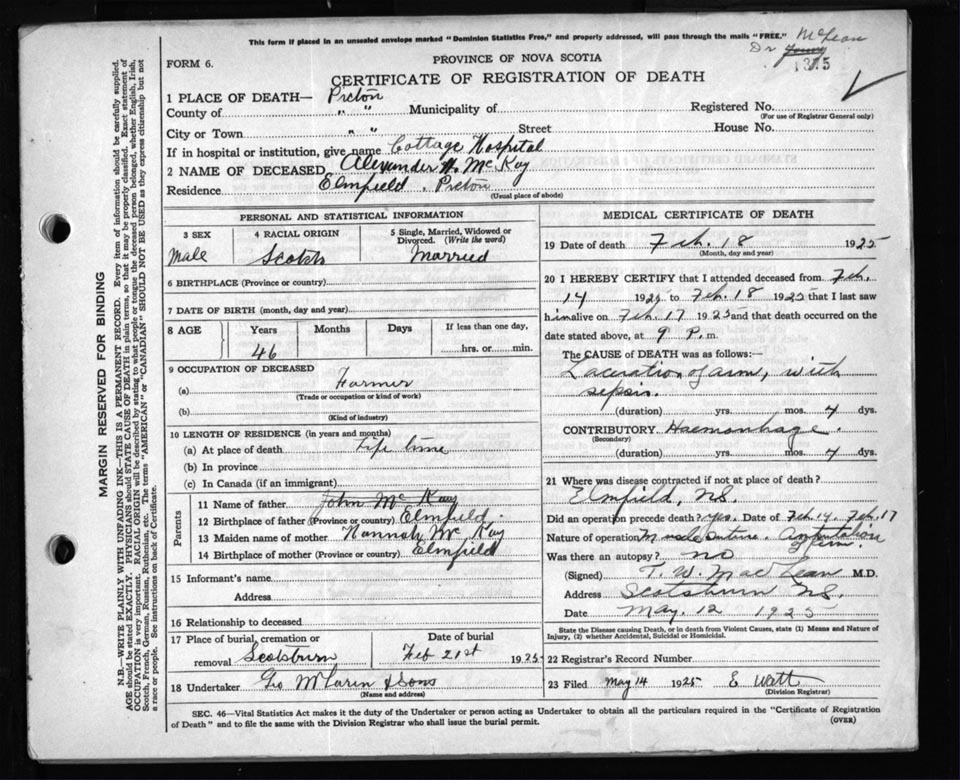 This form if placed in an unsealed envelope marked "Dominion Statistics Free," and properly addressed, will pass through the mails "FREE."
McLean
Dr Young
1375
FORM 6.
PROVINCE OF NOVA SCOTIA
CERTIFICATE OF REGISTRATION OF DEATH
1 PLACE OF DEATH— Pictou
County of " " Municipality of Registered No.
(For use of Registrar General only)
City or Town " " Street House No.
If in hospital or institution, give name Cottage Hospital
2 NAME OF DECEASED Alexander H. McKay
Residence Elmfield, Pictou
(Usual place of abode)
PERSONAL AND STATISTICAL INFORMATION
3 SEX 4 RACIAL ORIGIN 5 Single, Married, Widowed or Divorced. (Write the word)
Male Scotch Married
6 BIRTHPLACE (Province or country)
7 DATE OF BIRTH (month, day and year)
8 AGE Years Months Days If less than one day,
46 hrs. or min.
9 OCCUPATION OF DECEASED
(a) Farmer
(Trade or occupation or kind of work)
(b)
(Kind of industry)
10 LENGTH OF RESIDENCE (in years and months)
(a) At place of death Life time
(b) In province
(c) In Canada (if an immigrant)
Parents
11 Name of father John McKay
12 Birthplace of father (Province or country) Elmfield.
13 Maiden name of mother Hannah McKay
14 Birthplace of mother (Province or country) Elmfield
15 Informant's name
Address
16 Relationship to deceased
17 Place of burial, cremation or removal Scotsburn
Date of burial Feb 21st 1925
18 Undertaker Geo McLaren & Sons
(Name and address)
MEDICAL CERTIFICATE OF DEATH
19 Date of death Feb. 18 1925
(Month, day and year)
20 I HEREBY CERTIFY that I attended deceased from Feb.
14 1925 to Feb. 18 1925 that I last saw
him alive on Feb. 17 1925 and that death occurred on the
date stated above, at 9 P. m
The CAUSE of DEATH was as follows:—
Laceration of arm, with
sepsis.
(duration) yrs. mos. 4 dys.
CONTRIBUTORY Haemorrhage.
(Secondary)
(duration) yrs. mos. 4 dys.
21 Where was disease contracted if not at place of death?
Elmfield, N.S.
Did an operation precede death? Yes. Date of Feb 14, Feb. 17
Nature of operation Muscle Suture. Amputation of arm.
Was there an autopsy? no
(Signed) T. W. MacLean M.D.
Address Scotsburn N.S.
Date May. 12 1925
State the Disease causing Death, or in death from Violent Causes, state (1) Means and Nature of
Injury, (2) whether Accidental, Suicidal or Homicidal.
22 Registrar's Record Number
23 Filed May 14 1925 E Watt
(Division Registrar)
SEC. 46—Vital Statistics Act makes it the duty of the Undertaker or person acting as Undertaker to obtain all the particulars required in the "Certificate of Registration
of Death" and to file the same with the Division Registrar who shall issue the burial permit.
(OVER)
MARGIN RESERVED FOR BINDING
N.B.—WRITE PLAINLY WITH UNFADING INK—THIS IS A PERMANENT RECORD. Every item of information should be carefully supplied.
AGE should be stated EXACTLY. PHYSICIANS should STATE CAUSE OF DEATH in plain terms, so that it may be properly classified. Exact statement of
OCCUPATION is very important. RACIAL ORIGIN will be described by stating to what people or tongue the deceased person belonged, whether English, Irish,
Scotch, French, German, Russian, Ruthenian, etc. The terms "AMERICAN" or "CANADIAN" SHOULD NOT BE USED as they express citizenship but not
a race or people. See instructions on back of Certificate.